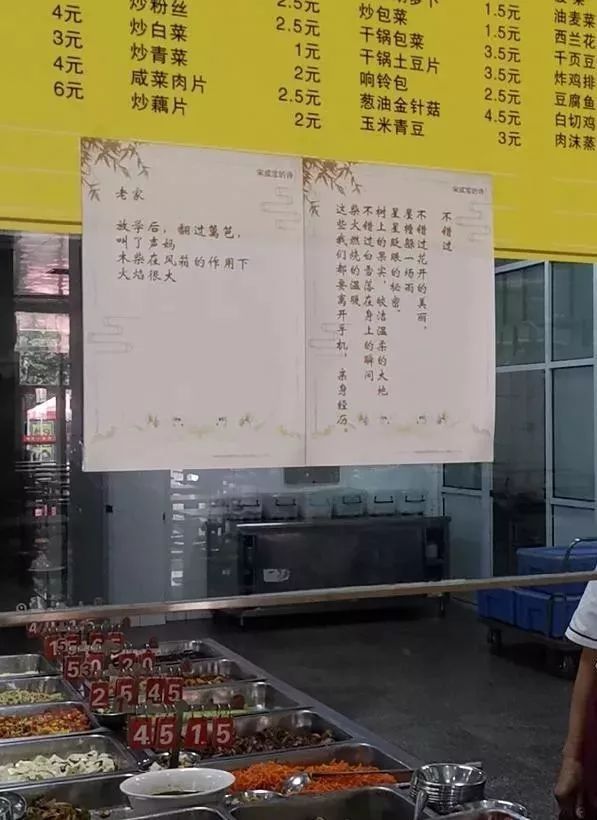 2.5元 卜 1.5元 油麦菜
炒粉丝 2.5元 炒包菜 1.5元 西兰花
4元 炒白菜 1元 干锅包菜 3.5元 千页豆
3元 炒青菜 2元 干锅土豆片 3.5元 炸鸡排
4元 咸菜肉片 2.5元 响铃包 2.5元 豆腐鱼
6元 炒藕片 2元 葱油金针菇 4.5元 白切鸡
玉米青豆 3元 肉沫蒸
老家
放学后，翻过篱笆，
叫了声妈
木柴在风箱的作用下
火焰很大
不错过
不错过花开的美丽，
屋檐躲一场雨
星星眨眼的秘密，
树上的果实，皎洁温柔的大地
不错过白雪落在身上的瞬间
柴火燃烧的温暖
这些我们都要离开手机，亲身经历。
2 5 4 5
4 5 1 5